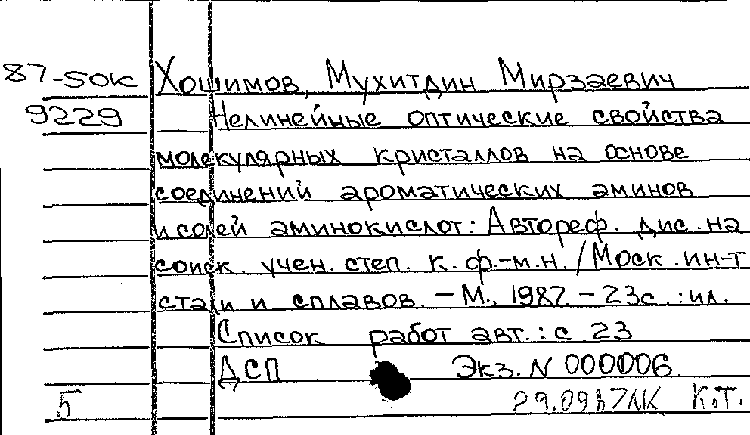 87-5ок Хошимов, Мухитдин Мирзаевич
9229 Нелинейные оптические свойства
молекулярных кристаллов на основе
соединений ароматических аминов
и солей аминокислот: Автореф. дис. на
соиск. учен. степ. к.ф.-м.н. / Моск. ин-т
стали и сплавов. - М., 1987. - 23с.: ил.
Список работ авт.: с 23
ДСП Экз. N 000006.
5 К.Т.